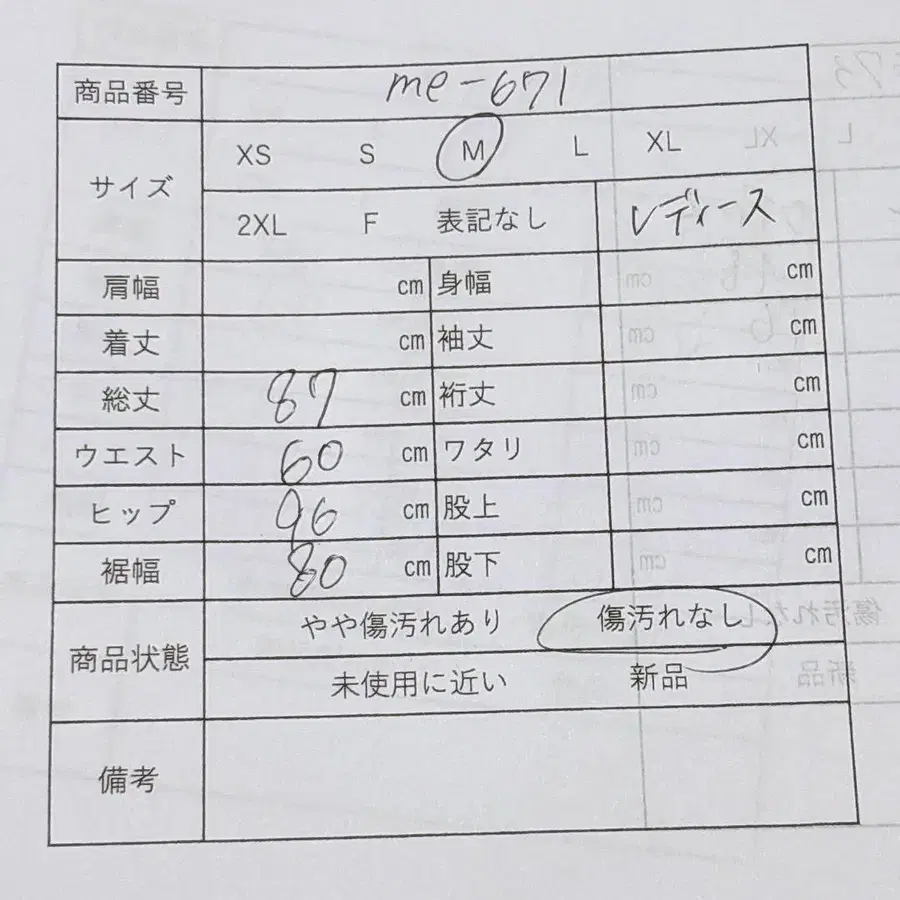 商品番号 me-671
サイズ XS S M L XL
2XL F 表記なし レディース
肩幅 cm 身幅 cm
着丈 cm 袖丈 cm
総丈 87 cm 裄丈 cm
ウエスト 60 cm ワタリ cm
ヒップ 96 cm 股上 cm
裾幅 80 cm 股下 cm
商品状態 やや傷汚れあり 傷汚れなし
未使用に近い 新品
備考